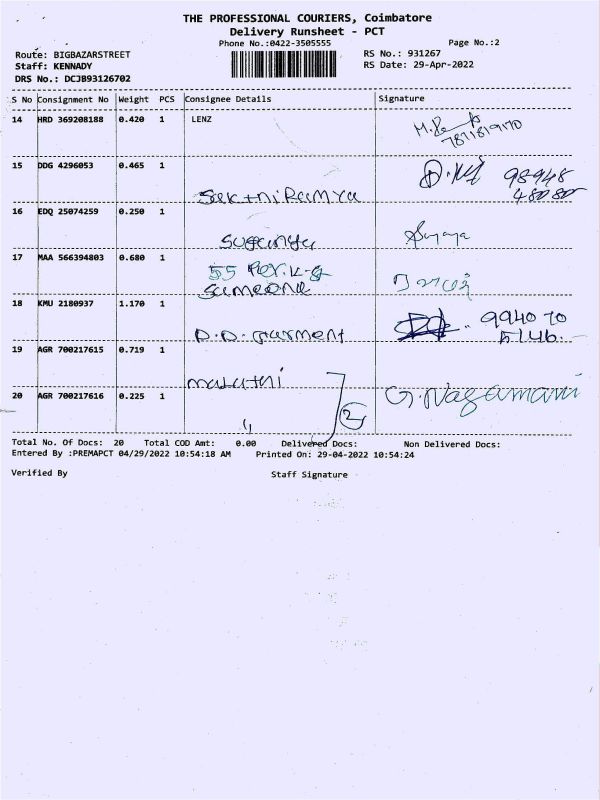 THE PROFESSIONAL COURIERS, Coimbatore
Delivery Runsheet - PCT
Phone No.:0422-3505555 Page No.:2
Route: BIGBAZARSTREET RS No.: 931267
Staff: KENNADY RS Date: 29-Apr-2022
DRS No.: DCJB93126702
S No Consignment No Weight PCS Consignee Details Signature
14 HRD 369208188 0.420 1 LENZ
7811819170
15 DDG 4296053 0.465 1
98948
48080
SakthiRamya
16 EDQ 25074259 0.250 1
Suganya
17 MAA 566394803 0.680 1
55
18 KMU 2180937 1.170 1
9940 70
5146.
D.D. Garment
19 AGR 700217615 0.719 1
maruthi
20 AGR 700217616 0.225 1 G. Nagamani
" 2
Total No. Of Docs: 20 Total COD Amt: 0.00 Delivered Docs: Non Delivered Docs:
Entered By :PREMAPCT 04/29/2022 10:54:18 AM Printed On: 29-04-2022 10:54:24
Verified By Staff Signature